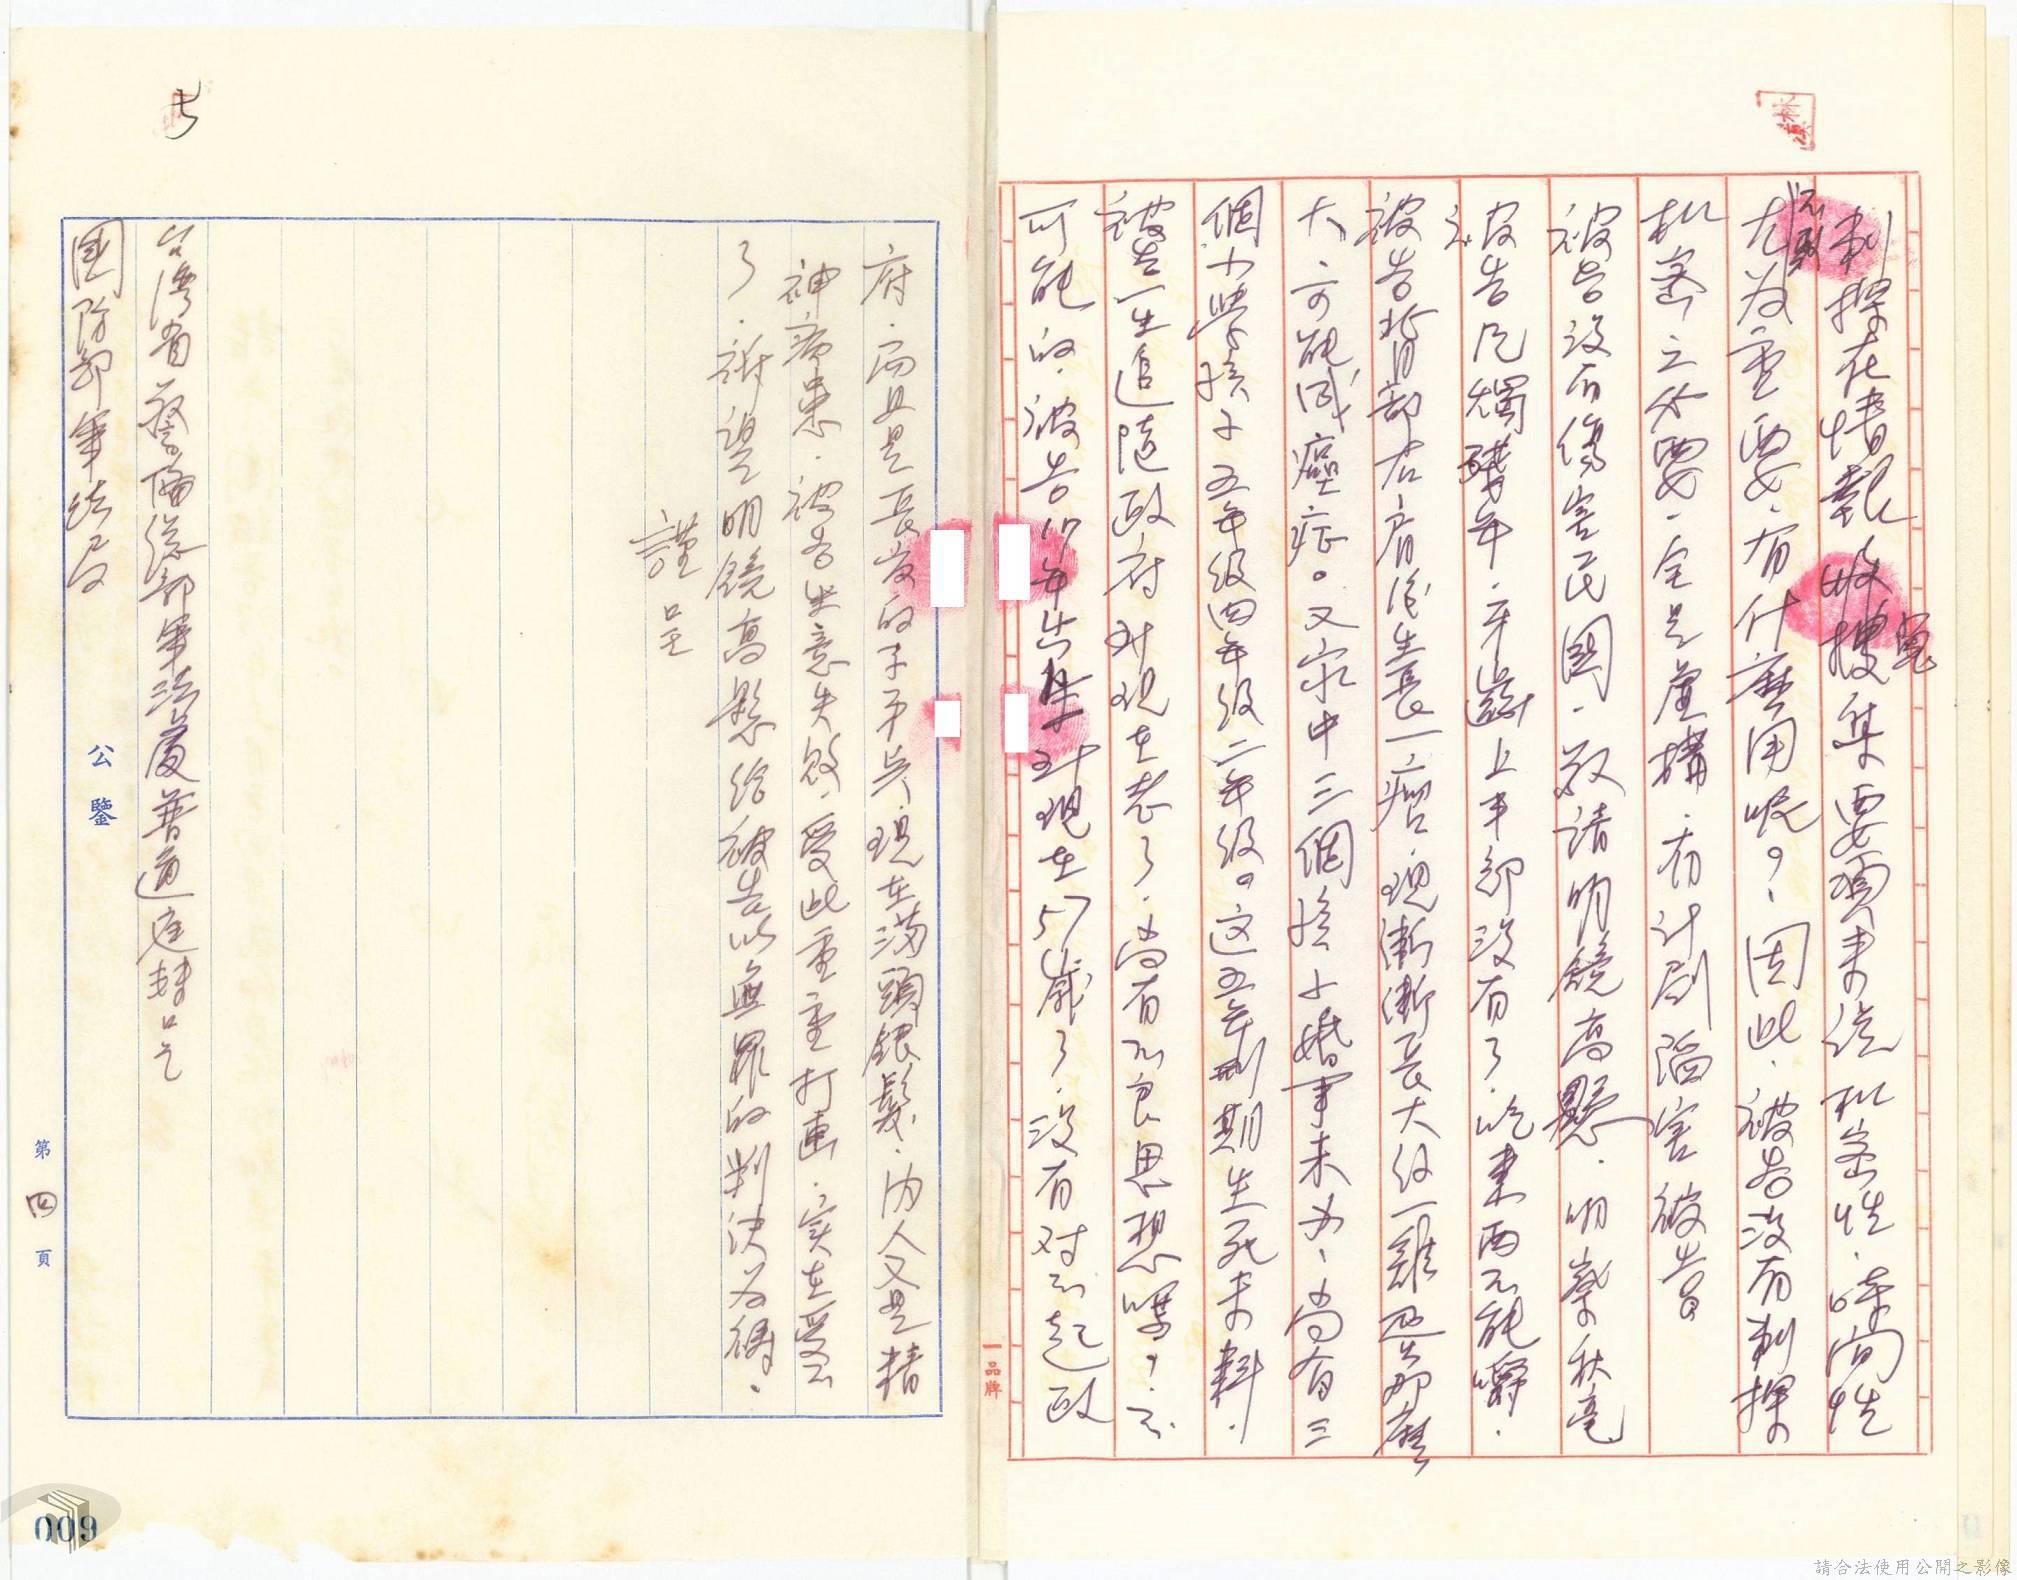 刺探在情報收搜集要須未從机密性．時間性
尤為重要．有什麼用呢？．因此．被告沒有刺探
机密之必要．完是虛構．有计劃陷害被告
被告没有傷害民國．敬請明鏡高懸．明察秋毫
被告風燭残年．牙齒上半部没有了．吃東西不能嚼．
被告背部右肩后生長一瘤．現漸漸長大任一雞旦那麼
大．可能成癌症。又家中三個孩子婚事未办．尚有三
個小學孩子五年级四年级二年级。这五年刑期生死未料．
被告一生追隨政府到現在老了．尚有不良思想嗎？．不
可能的．被告17年出生到現在57歲了．没有对不起政
府．而且是長发的子弟兵．現在满頭銀髮．内人又是精
神病患．被告生意失败．受此重重打画．实在受不
了．祈望明鏡高懸給被告以無罪的判決为禱．
謹呈
台灣省警備總部軍法處普通庭轉呈
國防部軍法局
公鑒
第四頁
一品牌
009
請合法使用公開之影像